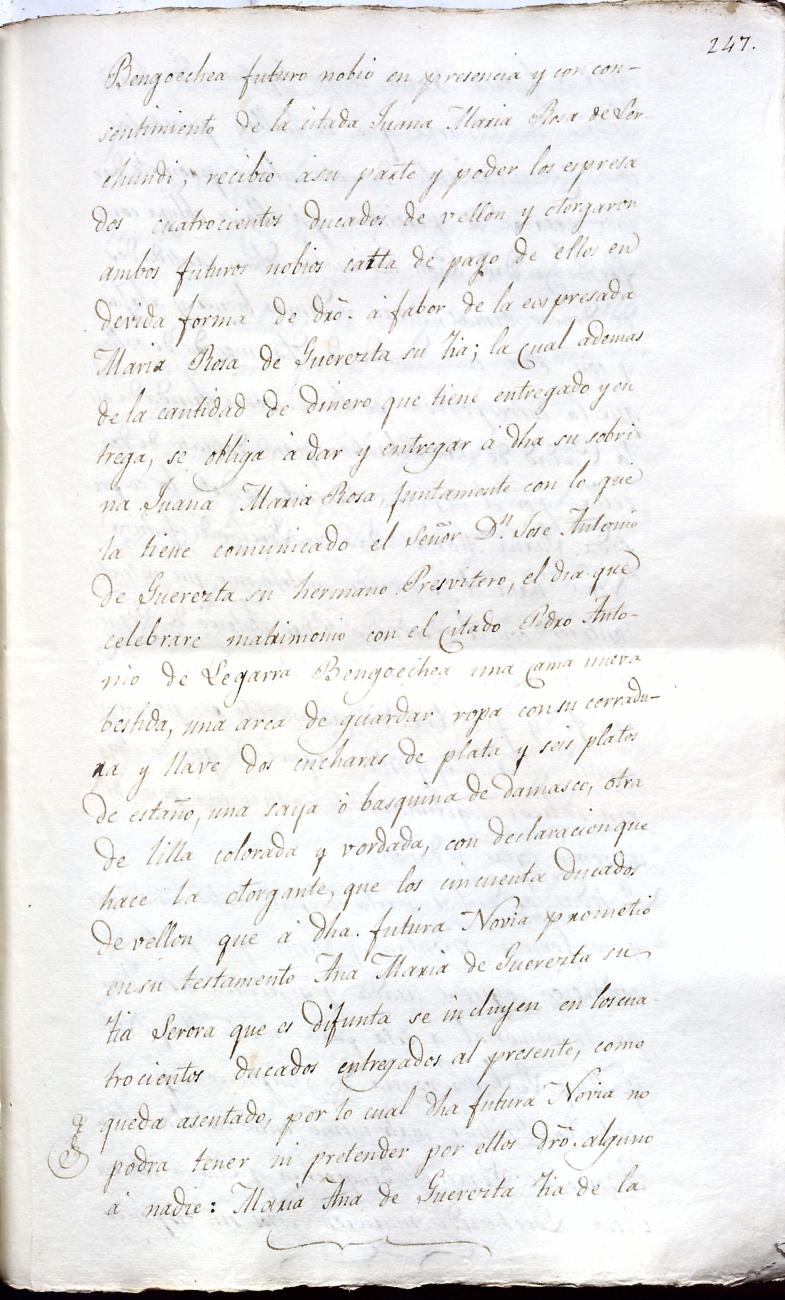 247.
Bengoechea futuro nobio en presencia y con con-
sentimiento de la citada Juana Maria Rosa de Ler
chundi; recibió a su parte y poder los espresa
dos cuatrocientos ducados de vellon y otorgaron
ambos futuros nobios catta de pago de ellos en
devida forma de drõ. á fabor de la espresada
Maria Rosa de Guerezta su tia; la cual ademas
de la cantidad de dinero que tiene entregado y en
trega, se obliga á dar y entregar á dha su sobri
na Juana Maria Rosa, juntamente con lo que
la tiene comunicado el Señor Dn. Jose Antonio
de Guerezta su hermano Presvitero, el dia que
celebrare matrimonio con el citado Pedro Anto-
nio de Legarra Bengoechea una cama nueva
bestida, una arca de guardar ropa con su cerradu-
ra y llave dos cucharas de plata y seis platos
de estaño, una saya ó basquina de damasco, otra
de lilla colorada y vordada, con declaracion que
hace la otorgante, que los cincuenta ducados
de vellon que á dha. futura Novia prometió
en su testamento Ana Maria de Guerezta su
tia Serora que es difunta se incluyen en los cua-
trocientos ducados entregados al presente, como
queda asentado, por lo cual dha futura Novia no
podra tener ni pretender por ellos drõ. alguno
á nadie: Maria Ana de Guerezta tia de la